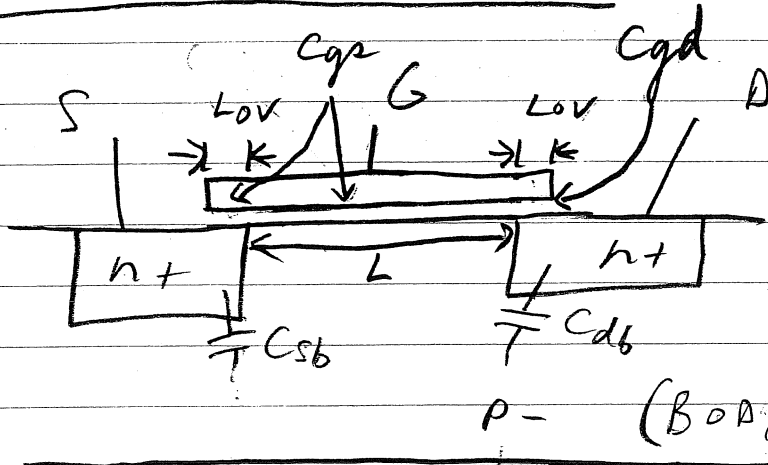 Cgs Cgd
S Lov G Lov D
n+ L n+
Csb Cdb
P- (BOD